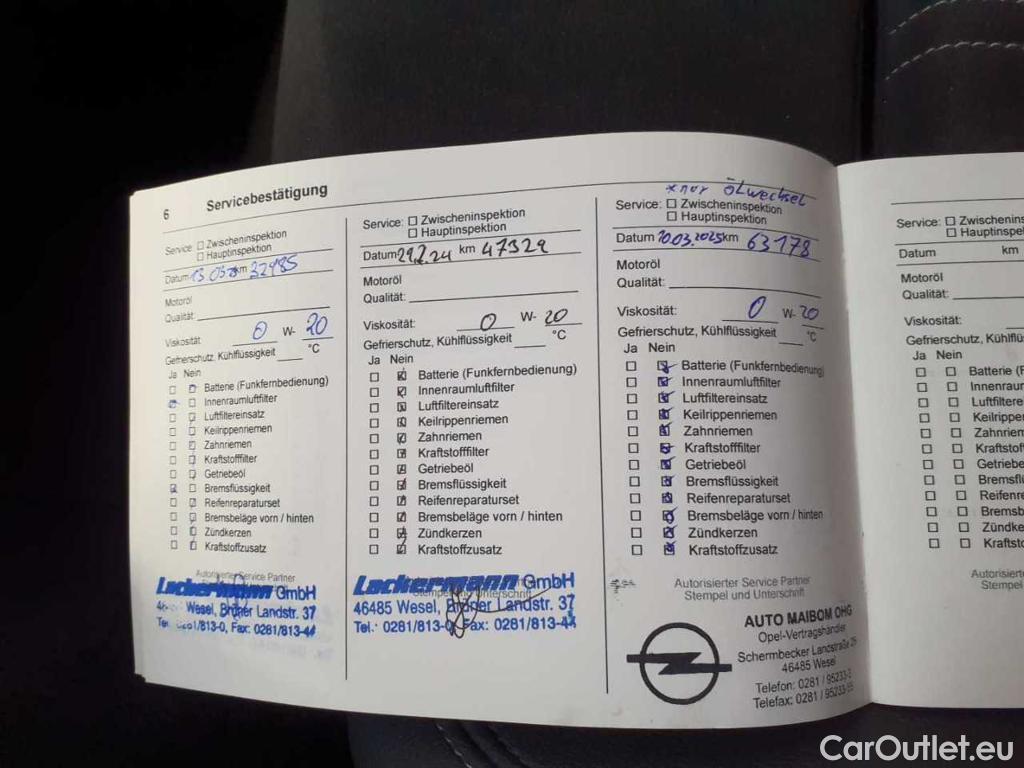 6 Servicebestätigung
Service: ☐ Zwischeninspektion
☐ Hauptinspektion
Datum 13.03 km 32985
Motoröl
Qualität:
Viskosität 0 W- 20
Gefrierschutz, Kühlflüssigkeit °C
Ja Nein
Batterie (Funkfernbedienung)
Innenraumluftfilter
Luftfiltereinsatz
Keilrippenriemen
Zahnriemen
Kraftstofffilter
Getriebeöl
Bremsflüssigkeit
Reifenreparaturset
Bremsbeläge vorn / hinten
Zündkerzen
Kraftstoffzusatz
Autorisierter Service Partner
Lackermann GmbH
Wesel, Brüner Landstr. 37
/813-0, Fax: 0281/813-44
Service: ☐ Zwischeninspektion
☐ Hauptinspektion
Datum 29.2.24 km 47329
Motoröl
Qualität:
Viskosität: 0 W- 20
Gefrierschutz, Kühlflüssigkeit °C
Ja Nein
Batterie (Funkfernbedienung)
Innenraumluftfilter
Luftfiltereinsatz
Keilrippenriemen
Zahnriemen
Kraftstofffilter
Getriebeöl
Bremsflüssigkeit
Reifenreparaturset
Bremsbeläge vorn / hinten
Zündkerzen
Kraftstoffzusatz
Stempel und Unterschrift
Lackermann GmbH
46485 Wesel, Brüner Landstr. 37
Tel.: 0281/813-0, Fax: 0281/813-44
*nur Ölwechsel
Service: ☐ Zwischeninspektion
☐ Hauptinspektion
Datum 10.03.2025 km 63178
Motoröl
Qualität:
Viskosität: 0 W- 20
Gefrierschutz, Kühlflüssigkeit °C
Ja Nein
Batterie (Funkfernbedienung)
Innenraumluftfilter
Luftfiltereinsatz
Keilrippenriemen
Zahnriemen
Kraftstofffilter
Getriebeöl
Bremsflüssigkeit
Reifenreparaturset
Bremsbeläge vorn / hinten
Zündkerzen
Kraftstoffzusatz
Autorisierter Service Partner
Stempel und Unterschrift
AUTO MAIBOM OHG
Opel-Vertragshändler
Schermbecker Landstraße 25
46485 Wesel
Telefon: 0281 / 95233-
Telefax: 0281 / 95233-
Service: ☐ Zwischenins
☐ Hauptinspe
Datum km
Motoröl
Qualität:
Viskosität:
Gefrierschutz, Kühlflüssig
Ja Nein
Batterie (F
Innenraum
Luftfiltere
Keilrippen
Zahnriem
Kraftstoff
Getriebe
Bremsfl
Reifenre
Bremsb
Zündke
Krafts
Autorisi
Ste
CarOutlet.eu